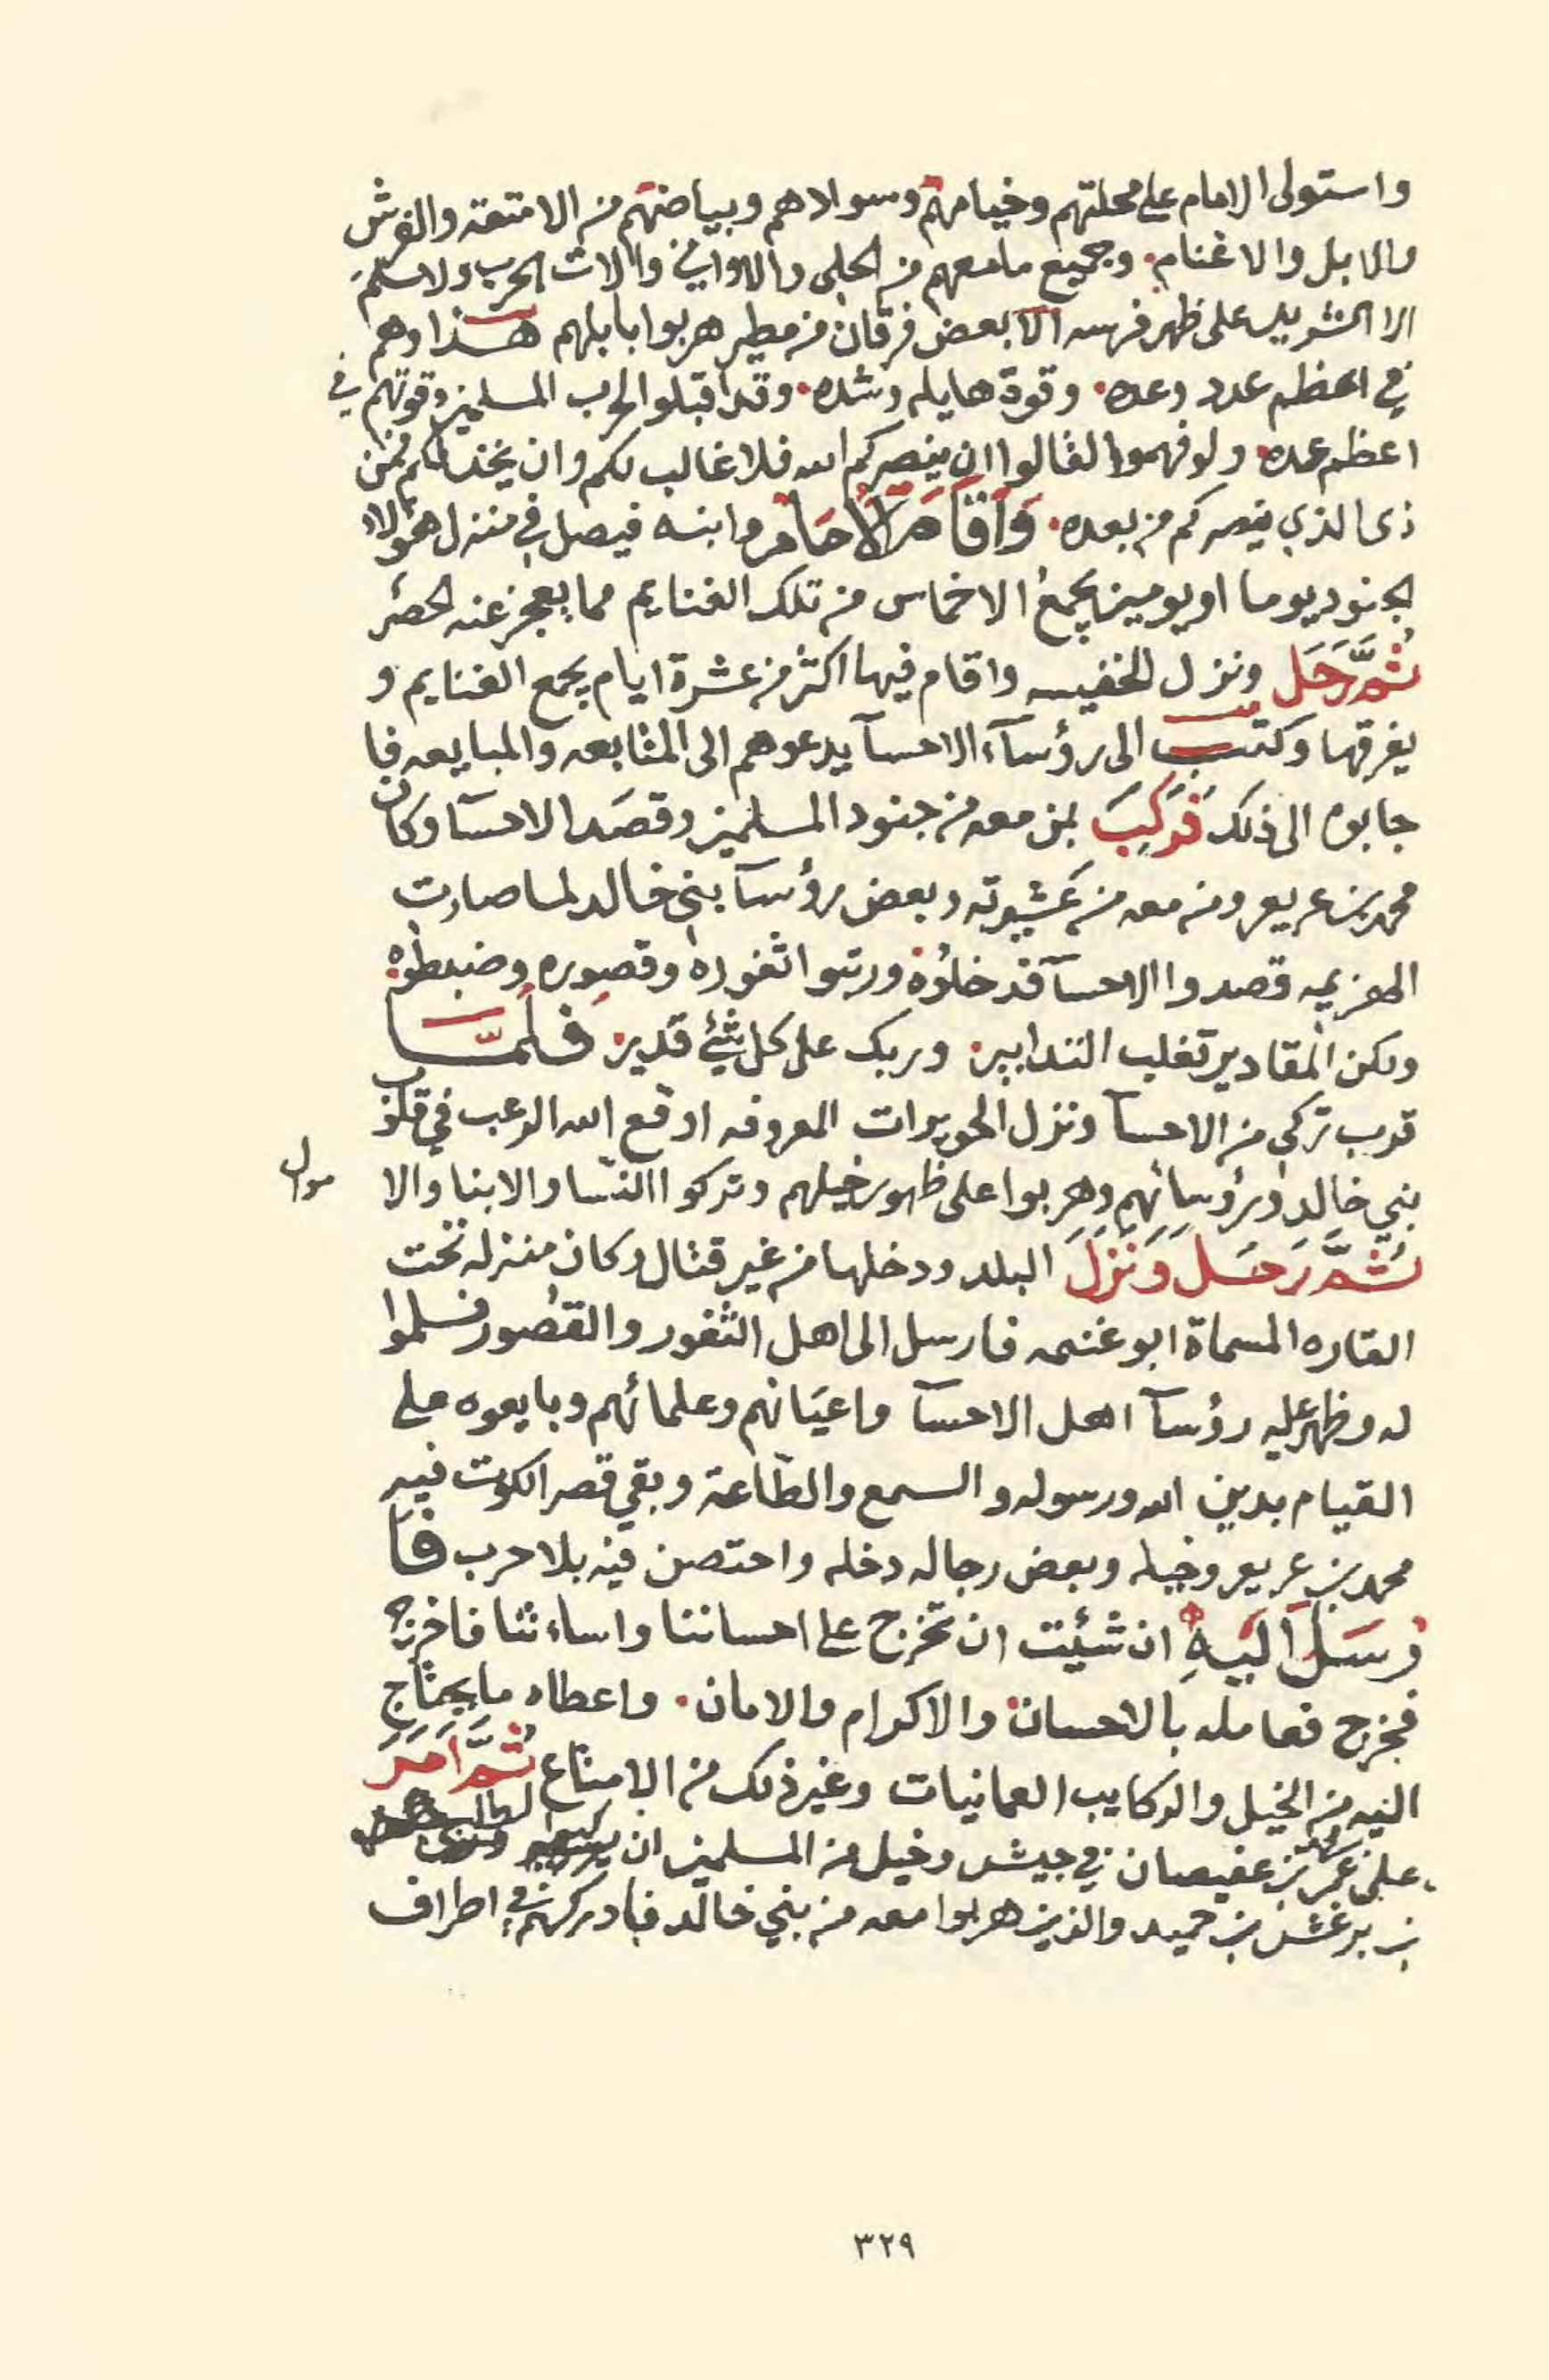 واستولى الامام على محلتهم وخيامهم وسوادهم وبياضهم من الامتعه والفرش
والابل والاغنام. وجميع مامعهم من الحلى والاوانى والات الحرب ولا سلم
الا الشريد على ظهر فرسه الا بعض فرقان من مطير هربوا بابلهم هذا وهم
في اعظم عدد وعده. وقوة هايله وشده. وقد اقبلوا لحرب المسلمين وقوتهم في
اعظم عده ولو فهموا لقالوا ان ينصركم الله فلا غالب لكم وان يخذلكم فمن
ذى الذي ينصركم من بعده. وَاقَامَ الاِمَام وابنه فيصل في منزل هؤلاء
الجنود يوما او يومين يجمعُ الاخماس من تلك الغنايم مما يعجز عنه الحصر
ثُمَّ رَحَل ونزل الخفيسه واقام فيها اكثر من عشرة ايام يجمع الغنايم و
يفرقها وكتب الى رؤسآء الاحسآ يدعوهم الى المتابعه والمبايعه فا
جابوه الى ذلك فَرَكِبَ بمن معه من جنود المسلمين وقصَد الاحسآ وكان
محمد بن عريعر ومن معه من عشيرته وبعض رؤسآ بني خالد لما صارت
الهزيمه قصدوا الاحسآ فدخلوُه ورتبوا ثغوره وقصوره وضبطوه
ولكن المقادير تغلب التدابير. وربك على كل شئ قدير. فلمَّــا
قرب تركي من الاحسآ ونزل الحويرات المعروفه اوقع الله الرعب في قلوب
بني خالد ورؤسائهم وهربوا على ظهور خيلهم وتركوا النسا والابنا والا
موال
ثُمَّ رَحَل وَنَزَلَ البلد ودخلها من غير قتال وكان منزله تحت
القاره المسماة ابو غنيمه فارسل الى اهل الثغور والقُصور فسلموا
له وظهر عليه رؤسآ اهل الاحسآ واعيَانهم وعلمائهم وبايعوه على
القيام بدين الله ورسوله والسمع والطّاعة وبقي قصر الكوت فيه
محمد بن عريعر وخيله وبعض رجاله دخله واحتصن فيه بلا حرب فاَ
رسَلَ اليَهِ ان شئيت ان تخرج على احساننا واساءتنا فاخرج
فخرج فعامله بالاحسان. والاكرام والامان. واعطاه مايحتاج
اليه من الخيل والركايب العمانيات وغير ذلك من الامتاع ثُمَّ امَرَ
على عمر بن عفيصان في جيش وخيل من المسلمين ان يركبوا
بن برغش بن حميد والذين هربوا معه من بني خالد فادركهم في اطراف
٣٢٩